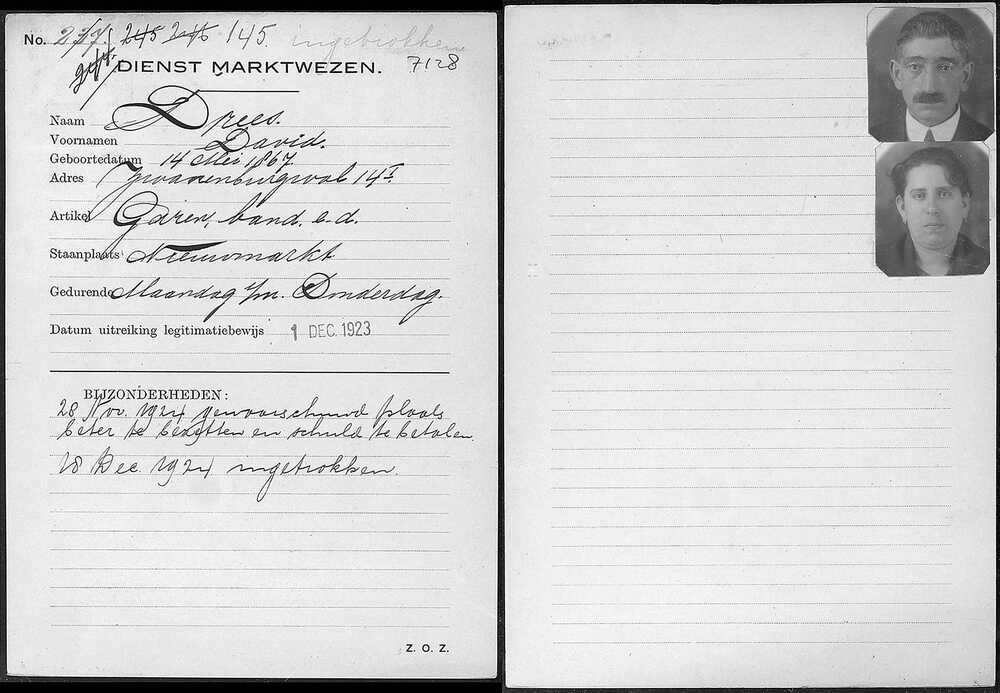 No. 237. 245 246 145. ingetrokken
DIENST MARKTWEZEN. 7128
Naam Drees.
Voornamen David.
Geboortedatum 14 Mei 1867
Adres Zwanenburgwal 14 I.
Artikel Garen, band. e. d.
Staanplaats Nieuwmarkt
Gedurende Maandag t/m. Donderdag.
Datum uitreiking legitimatiebewijs 1 DEC. 1923
BIJZONDERHEDEN:
28 Nov. 1924 gewaarschuwd plaats
beter te bezetten en schuld te betalen.
18 Dec. 1924 ingetrokken.
Z. O. Z.